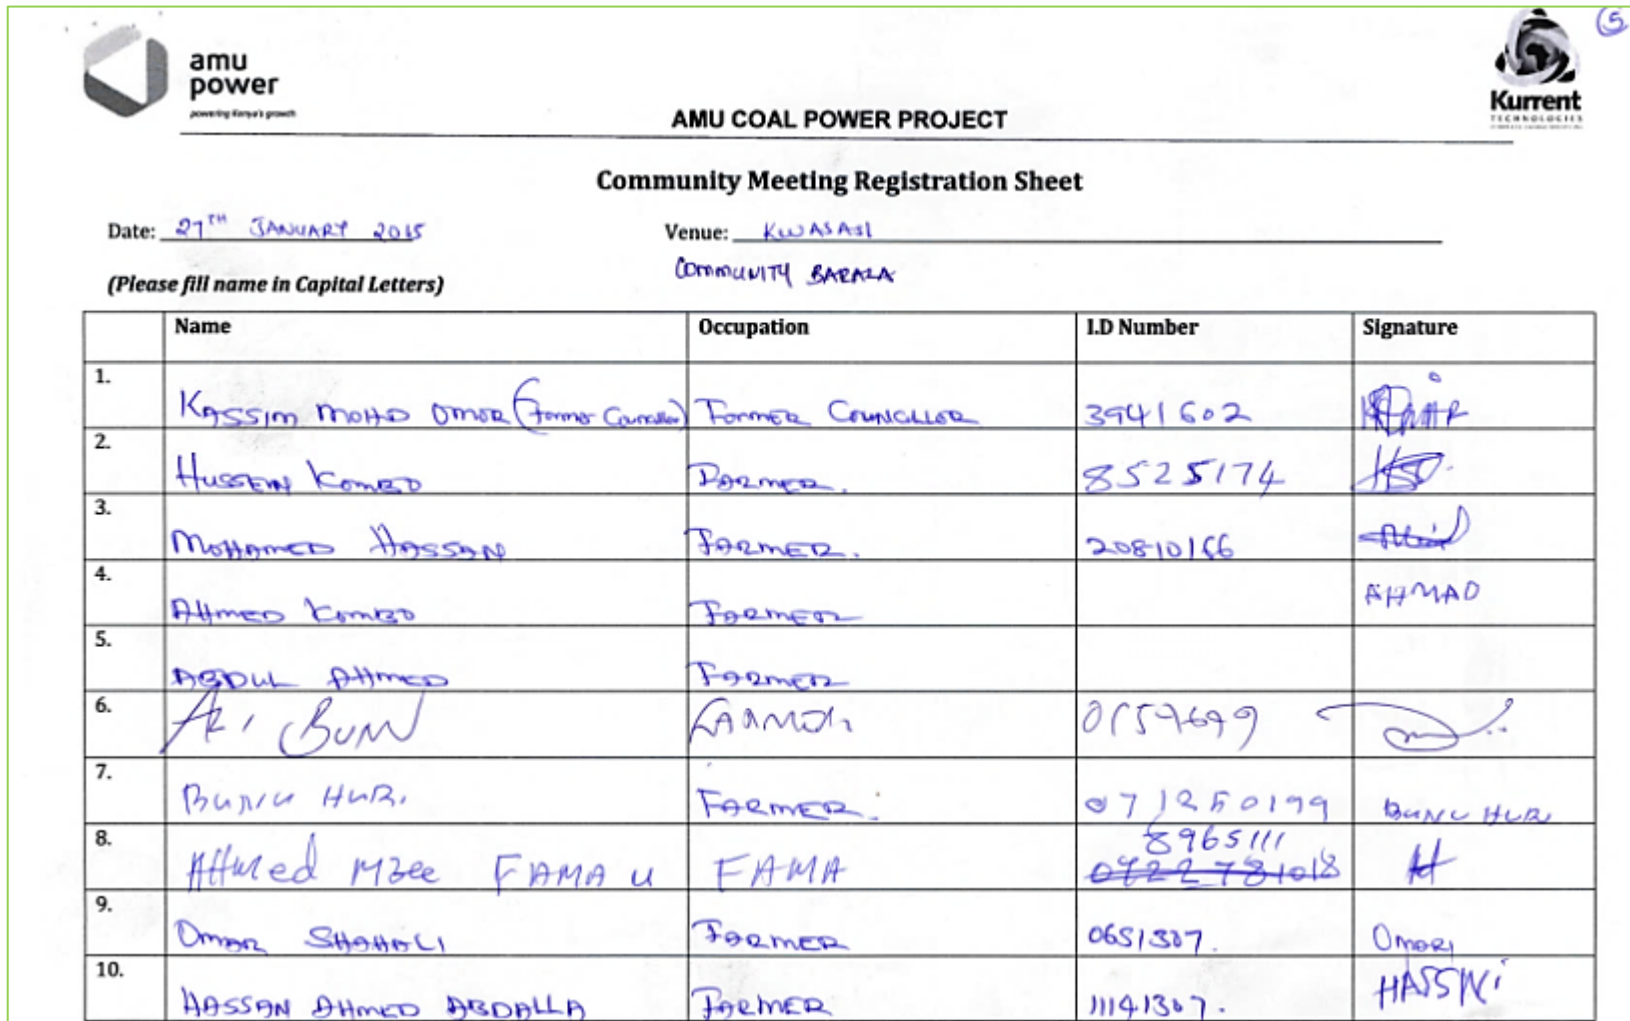 5
amu
power
powering Kenya's growth
Kurrent
TECHNOLOGIES
AMU COAL POWER PROJECT
Community Meeting Registration Sheet
Date: 27TH JANUARY 2015 Venue: KWASASI
COMMUNITY BARAZA
(Please fill name in Capital Letters)
Name Occupation I.D Number Signature
1. KASSIM MOHD OMOR (Former Councillor) FORMER COUNCILLOR 3941602
2. HUSSEIN KOMBO FARMER. 8525174
3. MOHAMED HASSAN FARMER. 20810166
4. AHMED KOMBO FARMER AHMAD
5. ABDUL AHMED FARMER
6. BUNU
7. BUNU HURI FARMER. 071250199 BUNU HURI
8. AHMED MZEE FAMAU FAMA 8965111
0722781018
9. OMAR SHAHALI FARMER 0651307. OMARI
10. HASSAN AHMED ABDALLA FARMER 11141307. HASSNI